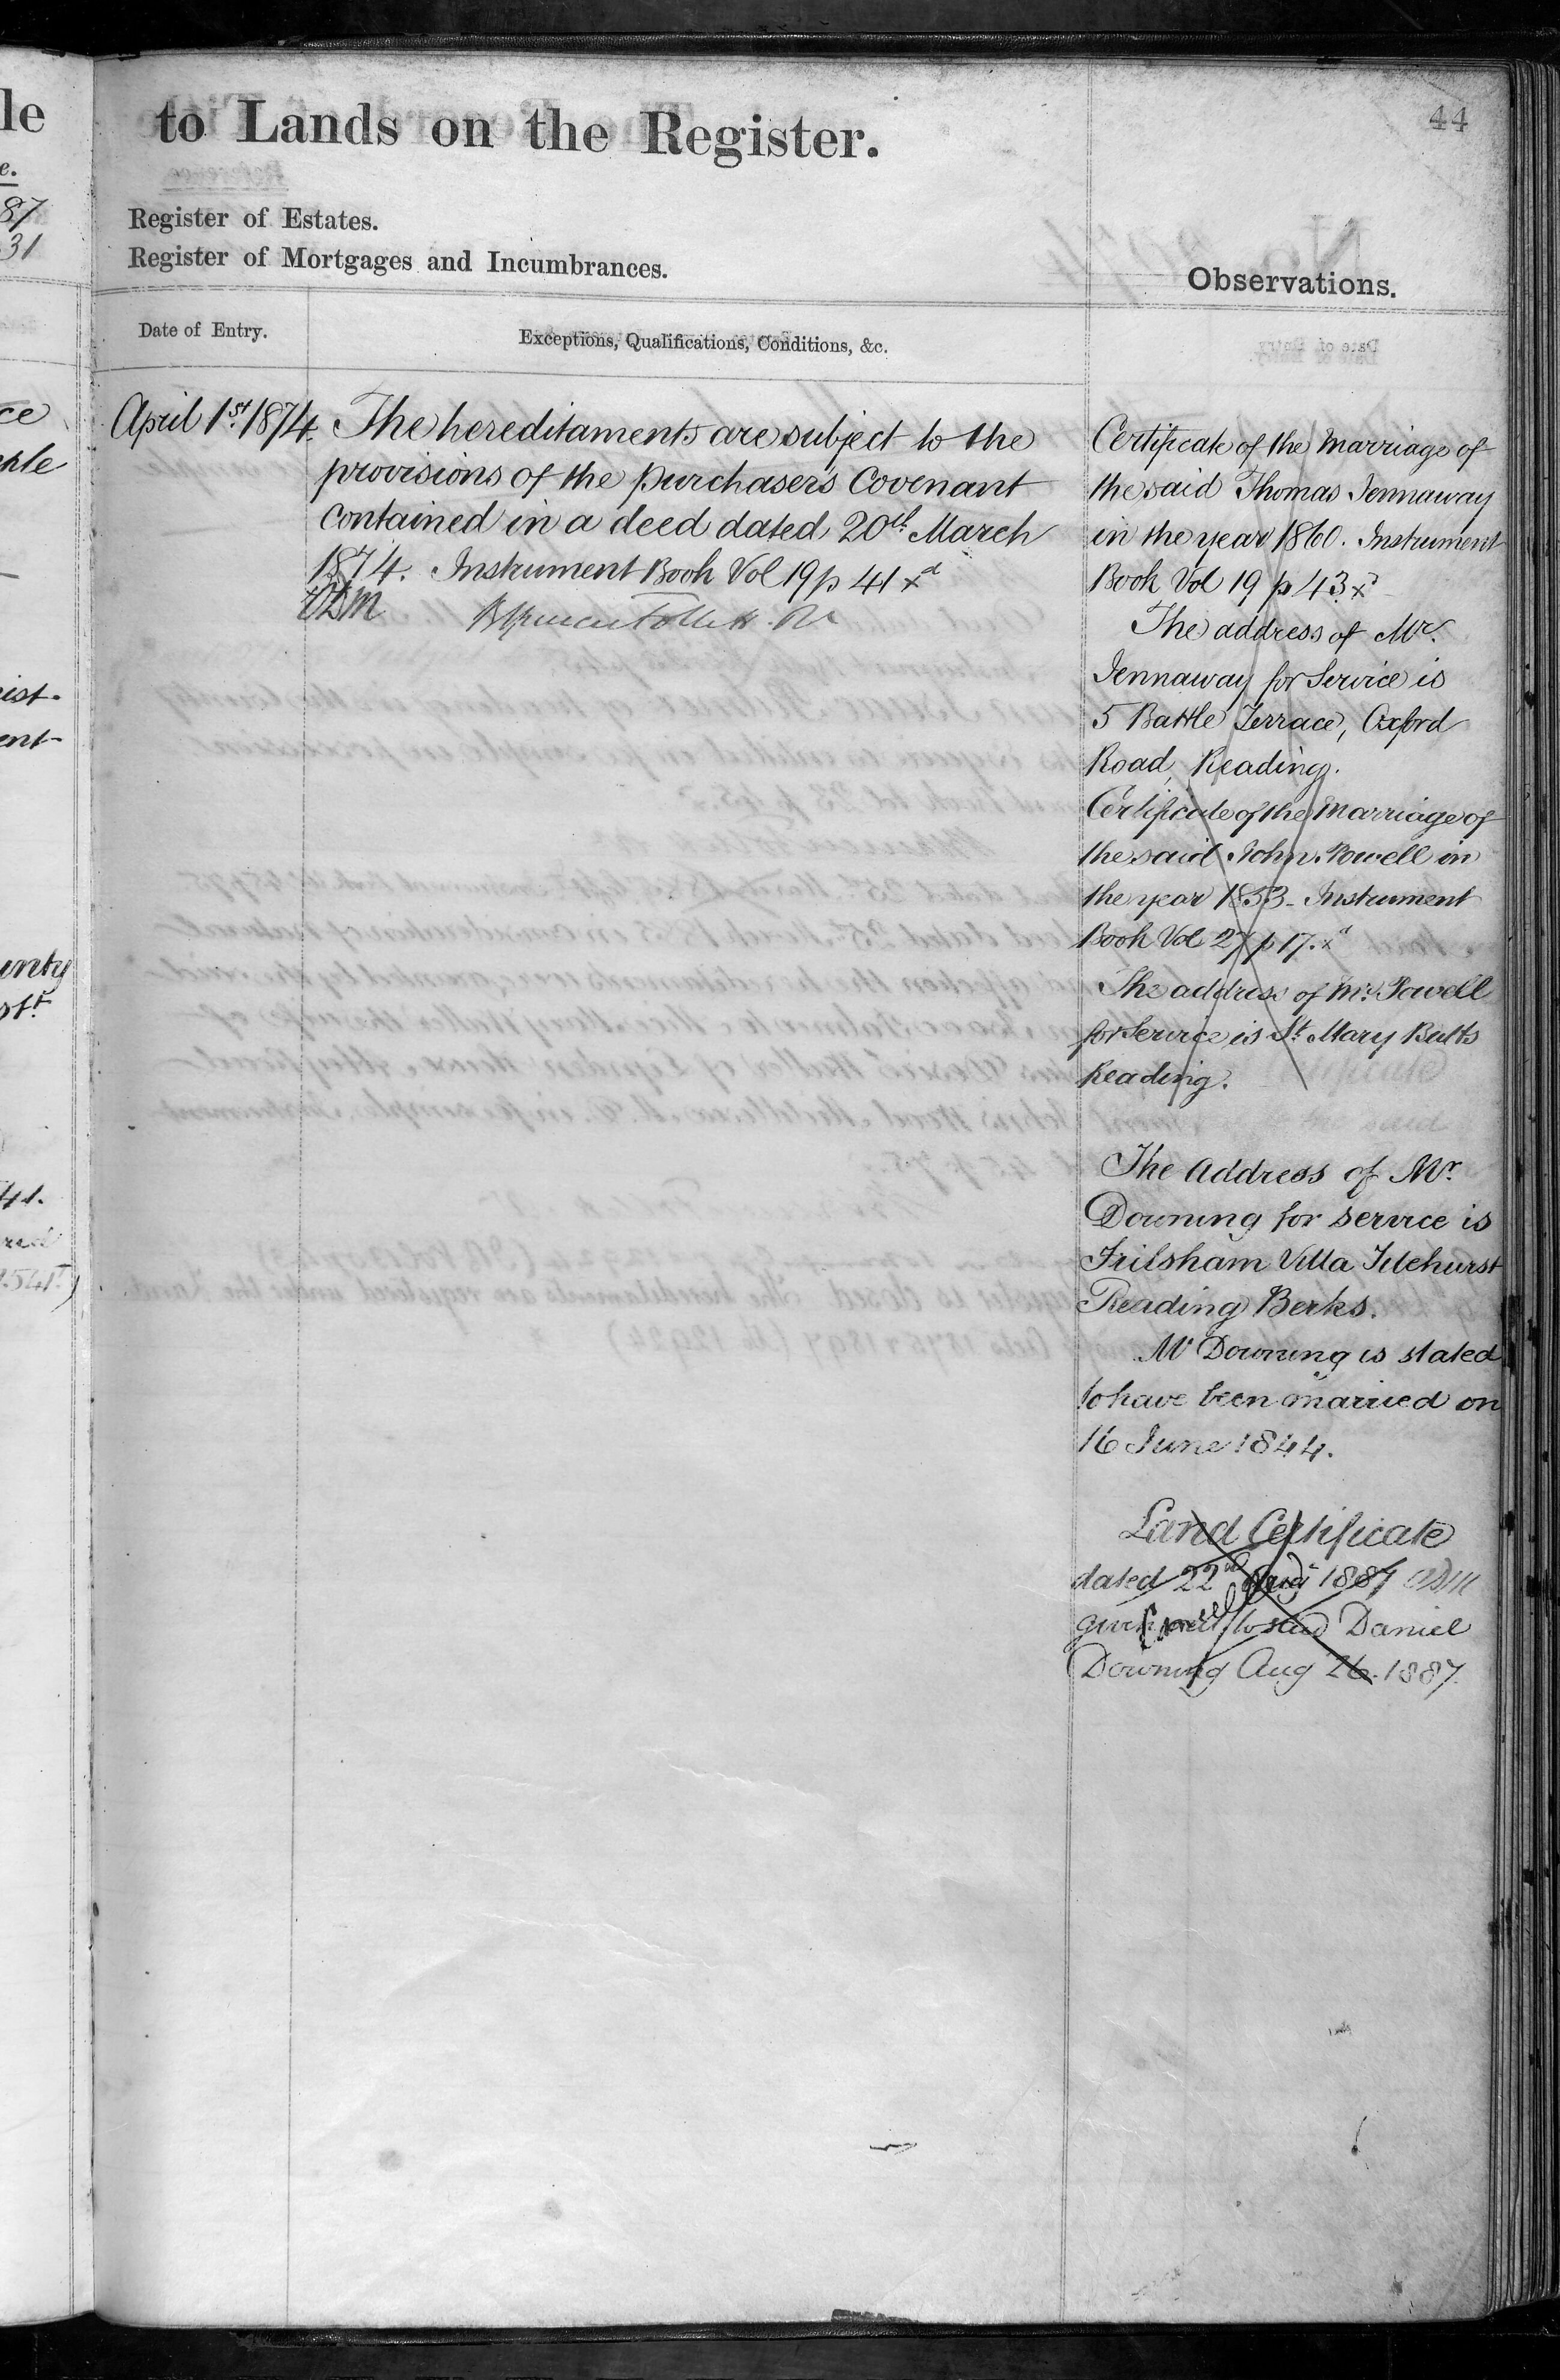 44
to Lands on the Register.
Register of Estates.
Register of Mortgages and Incumbrances.
Observations.
Date of Entry.
Exceptions, Qualifications, Conditions, &c.
April 1st. 1874.
The hereditaments are subject to the
provisions of the purchasers Covenant
contained in a deed dated 20th March
1874. Instrument Book Vol 19 p 41 xd
Certificate of the Marriage of
the said Thomas Jennaway
in the year 1860. Instrument
Book Vol 19 p 43 xd
The address of Mr.
Jennaway for Service is
5 Battle Terrace, Oxford
Road, Reading.
Certificate of the Marriage of
the said John Powell in
the year 1853 - Instrument
Book Vol 27 p 17. xd
The address of Mr. Powell
for Service is St. Mary Butts
Reading.
The Address of Mr.
Downing for service is
Frilsham Villa Tilehurst
Reading Berks.
Mr Downing is stated
to have been married on
16 June 1844.
Land Certificate
dated 22nd Aug 1887
given to said Daniel
Downing Aug 26. 1887.
le
e.
87
31
ce
ist.
ent
unty
41.